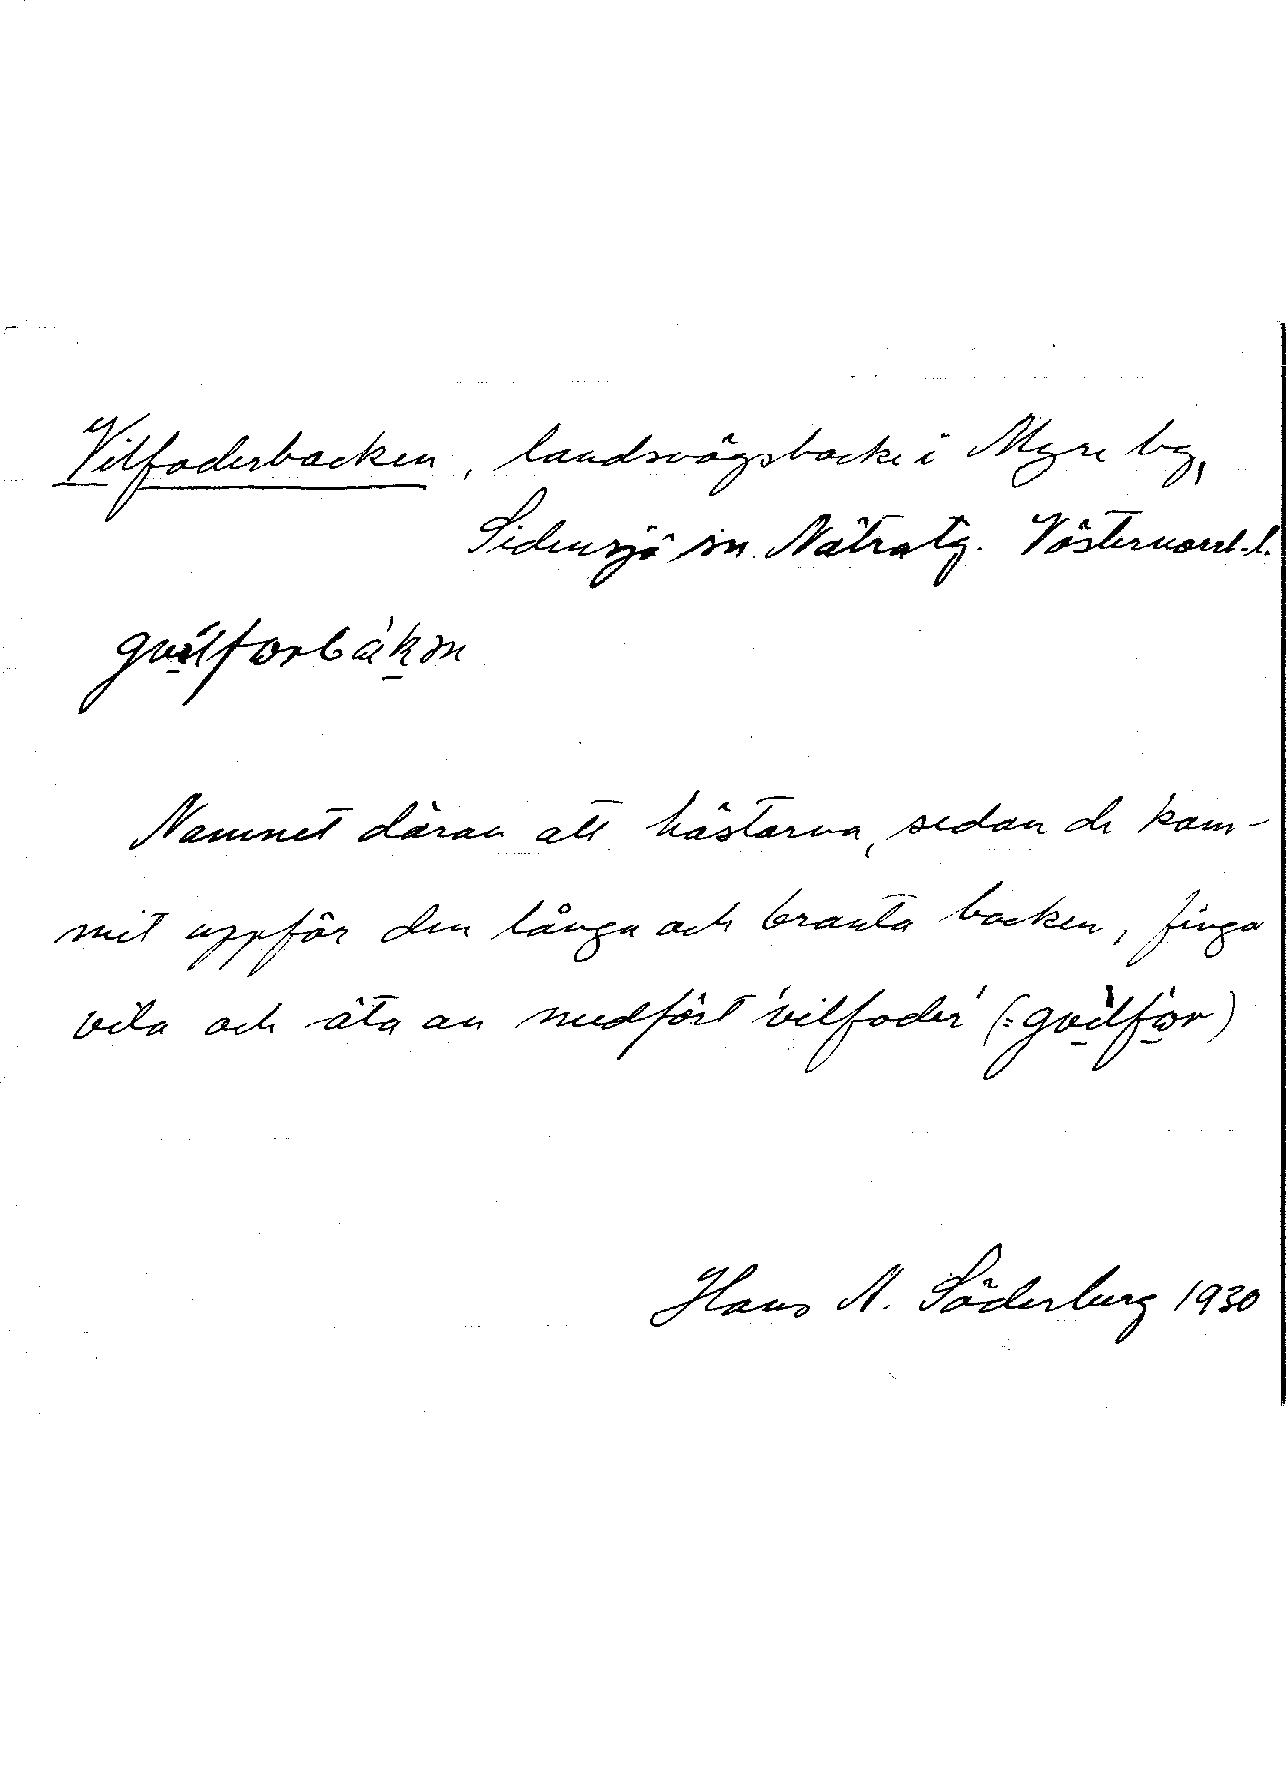 Vilfoderbacken, landsvägsbacke i Myre by,
Sidensjö sn. Nätra tg. Västernorrl. l.
gvilforbakɷn
Namnet därav att hästarna, sedan de kom-
mit uppför den långa och branta backen, finga
vila och äta av medfört 'vilfoder' (= gvilfor)
Hans N. Söderberg 1930